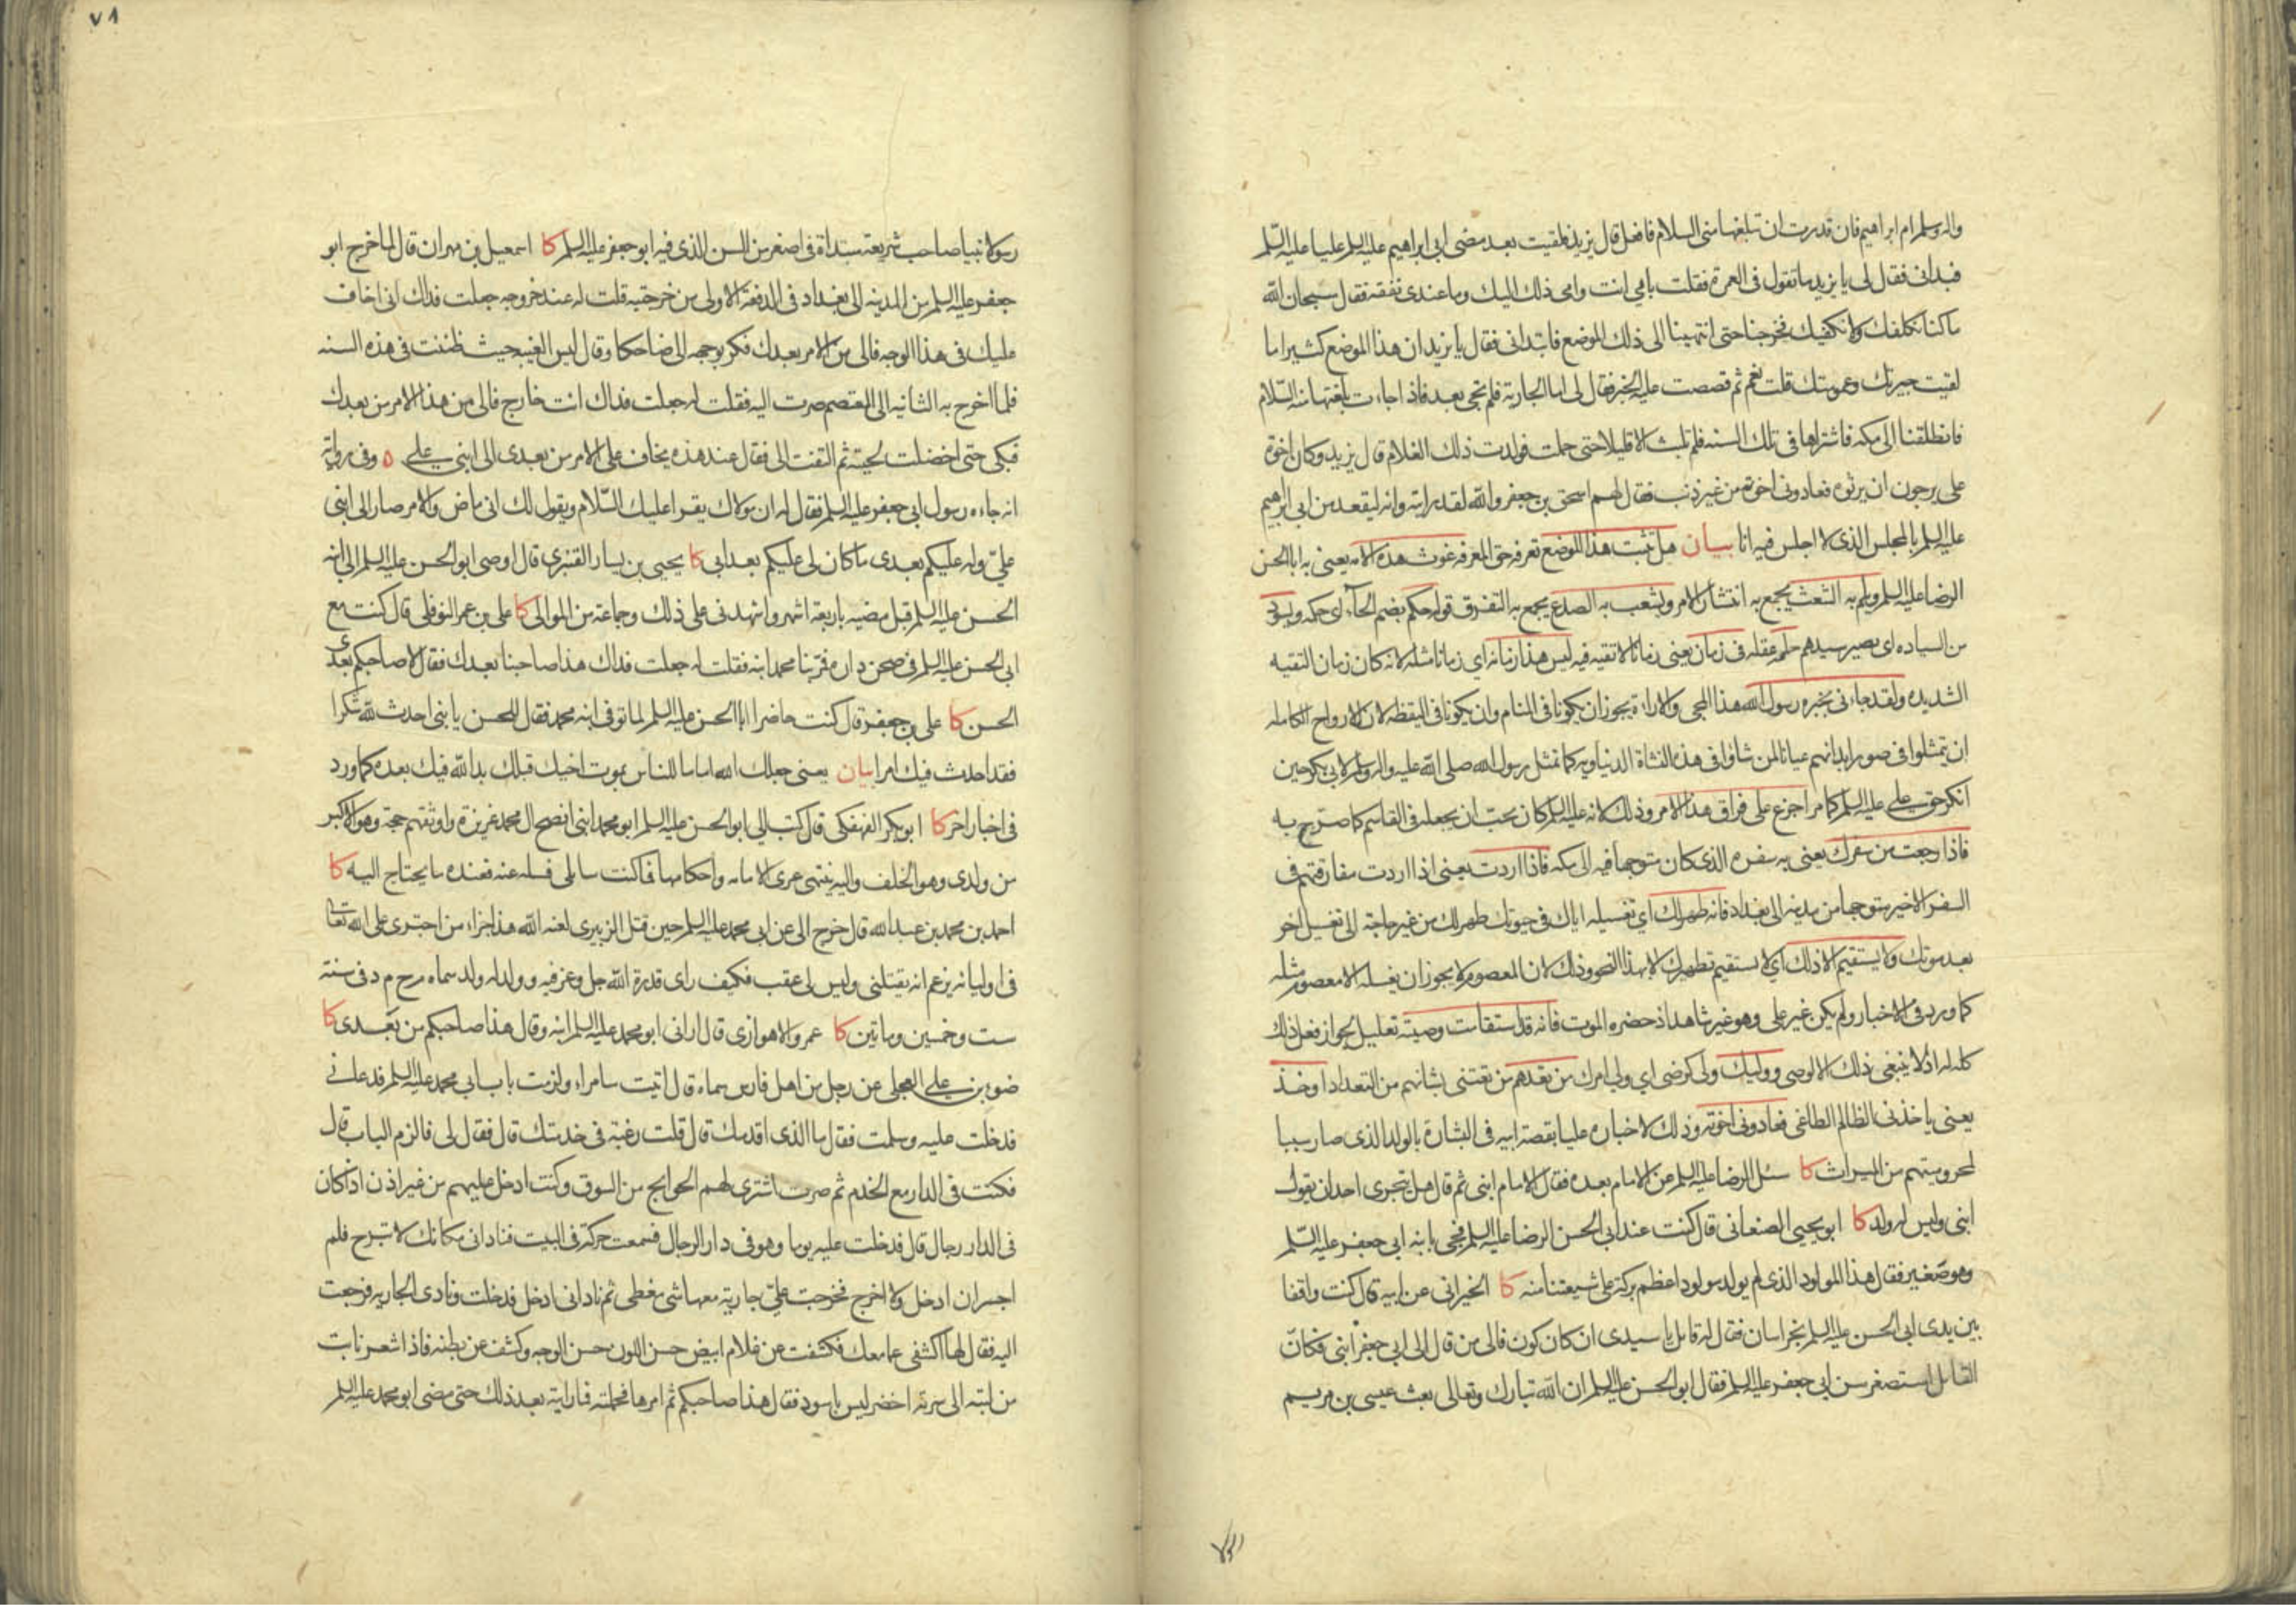 واله وسلم ام ابراهيم فان قدرت ان تبلغها منى السلام فافعل قال يزيد فلقيت بعد مضى ابى ابراهيم عليه السلم عليا عليه السّلم
فبدانى فقال لى يا يزيد ما تقول فى العمرة فقلت بابى انت وامى ذلك اليك وما عندى نفقة فقال سبحان الله
ما كنا نكلفك ولا نكفيك فخرجنا حتى انتهينا الى ذلك الموضع فابتدانى فقال يا يزيد ان هذا الموضع كثيرا ما
لقيت جيرتك وعمومتك قلت نعم ثم قصصت عليه الخبر فقال لى اما الجارية فلم تجى بعد فاذا جاءت بلغتها منه السّلام
فانطلقنا الى مكه فاشتراها فى تلك السنه فلم تلبث الا قليلا حتى حملت فولدت ذلك الغلام قال يزيد وكان اخوة
على يرجون ان يرثوه فعادونى اخوته من غير ذنب فقال لهم اسحق بن جعفر والله لقد رايته وانه ليقعد من ابى ابراهيم
عليه السلم بالمجلس الذى لا اجلس فيه انا بيان هل تثبت هذا الموضع تعرفه حق المعرفه غوث هذه الامه يعنى به ابا الحسن
الرضا عليه السلم ويلم به الشعث يجمع به انتشار الامر ويشعب به الصدع يجمع به التفرق قوله حكم بضم الحآء اى حكمه ويسود
من السياده اى يصير سيدهم حلمه عقله فى زمان يعنى زمانا لا تقيه فيه ليس هذا زمانه اى زمانا مثله لانه كان زمان التقيه
الشديده ولقد جاءنى بخبره رسول الله هذا المجى والاراءة يجوز ان يكونا فى المنام وان يكونا فى اليقظه لان للارواح الكامله
ان يتمثلوا فى صور ابدانهم عيانا لمن شاؤا فى هذه النشاة الدنياويه كما تمثل رسول الله صلى الله عليه واله وسلم لابى بكر حين
انكر حق على عليه السلم كما مر اجزع على فراق هذا الامر وذلك لانه عليه السلم كان يحب ان يجعله فى القاسم كما صرّح به
فاذا رجعت من سفرك يعنى به سفره الذى كان متوجها فيه الى مكه فاذا اردت يعنى اذا اردت مفارقتهم فى
السفر الاخير متوجها من مدينه الى بغداد فانه طهر لك اى تغسيله اياك فى حيوتك طهر لك من غير حاجة الى تغسيل اخر
بعد موتك ولا يستقيم الا ذلك اى لا يستقيم تطهيرك الا بهذا النحو وذلك لان المعصوم لا يجوز ان يغسله الا معصوم مثله
كما ورد فى الاخبار ولم يكن غير على وهو غير شاهد اذ حضره الموت فانه قد استقامت وصيته تعليل لجواز فعل ذلك
كله له اذ لا ينبغى ذلك الا لوصى ووليك ولى كرضى اى ولى امرك من تعدهم من تعتنى بشانهم من التعداد اوخذ
يعنى ياخذنى الظالم الطاغى فعادونى اخوته وذلك لاخباره عليا بقصة ابيه فى البشارة بالولد الذى صار سببا
لمحروميتهم من الميراث كا سئل الرضا عليه السلم عن الامام بعده فقال الامام ابنى ثم قال هل يتجرى احد ان يقول
ابنى وليس له ولد كا ابو يحيى الصنعانى قال كنت عند ابى الحسن الرضا عليه السلم فجى بابنه ابى جعفر عليه السّلم
وهو صغير فقال هذا المولود الذى لم يولد مولود اعظم بركة على شيعتنا منه كا الخيرانى عن ابيه قال كنت واقفا
بين يدى ابى الحسن عليه السلم بخراسان فقال له قايل يا سيدى ان كان كون فالى من قال الى ابى جعفر ابنى فكانّ
القايل استصغر سن ابى جعفر عليه السلم فقال ابو الحسن عليه السلم ان الله تبارك وتعالى بعث عيسى بن مريم
٧٨
رسولا نبيا صاحب شريعة مبتداة فى اصغر من السن الذى فيه ابو جعفر عليه السلم كا اسمعيل بن مهران قال لما خرج ابو
جعفر عليه السلم من المدينه الى بغداد فى الدفعة الاولى من خرجتيه قلت له عند خروجه جعلت فداك انى اخاف
عليك فى هذا الوجه فالى من الامر بعدك فكر بوجهه الى ضاحكا وقال ليس الغيبة حيث ظننت فى هذه السنه
فلما اخرج به الثانيه الى المعتصم صرت اليه فقلت له جعلت فداك انت خارج فالى من هذا الامر من بعدك
فبكى حتى اخضلت لحيته ثم التفت الى فقال عند هذه يخاف على الامر من بعدى الى ابنى على ٥ وفى رواية
انه جاءه رسول ابى جعفر عليه السلم فقال له ان مولاك يقرا عليك السّلام ويقول لك انى ماض والامر صار الى ابنى
علىّ وله عليكم بعدى ما كان لى عليكم بعد ابى كا يحيى بن يسار القنبرى قال اوصى ابو الحسن عليه السلم الى ابنه
الحسن عليه السلم قبل مضيه باربعة اشهر واشهدنى على ذلك وجماعة من الموالى كا على بن عمر النوفلى قال كنت مع
ابى الحسن عليه السلم فى صحن داره فمرّ بنا محمد ابنه فقلت له جعلت فداك هذا صاحبنا بعدك فقال لا صاحبكم بعدى
الحسن كا على بن جعفر قال كنت حاضرا ابا الحسن عليه السلم لما توفى ابنه محمد فقال للحسن يا بنى احدث لله شكرا
فقد احدث فيك امرا بيان يعنى جعلك الله اماما للناس بموت اخيك قبلك بدا لله فيك بعده كما ورد
فى اخبار اخر كا ابو بكر الفهفكى قال كتب الى ابو الحسن عليه السلم ابو محمد ابنى انصح ال محمد غريزة واوثقهم حجة وهو الاكبر
من ولدى وهو الخلف واليه ينتهى عرى الامامه واحكامها فما كنت سائلى فسله عنه فعنده ما يحتاج اليه كا
احمد بن محمد بن عبد الله قال خرج الى عن ابى محمد عليه السلم حين قتل الزبيرى لعنه الله هذا جزاء من اجترى على الله تعالى
فى اوليائه يزعم انه يقتلنى وليس لى عقب فكيف راى قدرة الله جل وعز فيه وولد له ولد سماه م ح م د فى سنة
ست وخمسين وماتين كا عمرو الاهوازى قال ارانى ابو محمد عليه السلم ابنه وقال هذا صاحبكم من بعدى كا
ضوء بن على العجلى عن رجل من اهل فارس سماه قال اتيت سامراء ولزمت باب ابى محمد عليه السلم فدعانى
فدخلت عليه وسلمت فقال ما الذى اقدمك قال قلت رغبة فى خدمتك قال فقال لى فالزم الباب قال
فكنت فى الدار مع الخدم ثم صرت اشترى لهم الحوايج من السوق وكنت ادخل عليهم من غير اذن اذا كان
فى الدار رجال قال فدخلت عليه يوما وهو فى دار الرجال فسمعت حركة فى البيت فنادانى مكانك لا تبرح فلم
اجسر ان ادخل ولا اخرج فخرجت علىّ جارية معها شى مغطى ثم نادانى ادخل فدخلت ونادى الجاريه فرجعت
اليه فقال لها اكشفى عما معك فكشفت عن غلام ابيض حسن اللون حسن الوجه وكشف عن بطنه فاذا شعر نابت
من لبته الى سرته اخضر ليس باسود فقال هذا صاحبكم ثم امرها فحملته فما رايته بعد ذلك حتى مضى ابو محمد عليه السلم